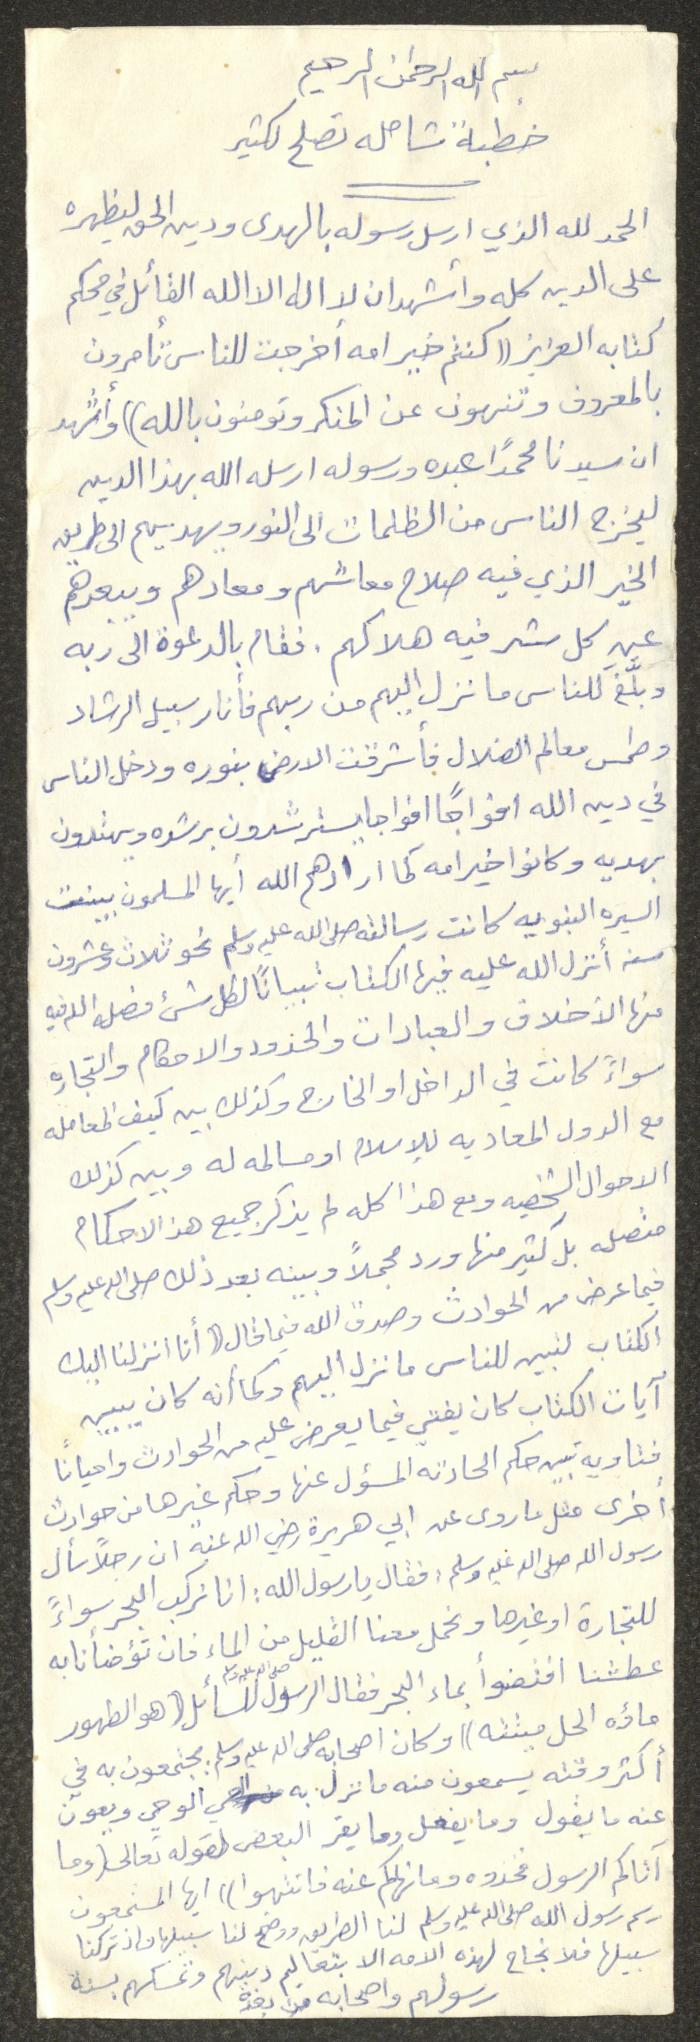 بسم الله الرحمن الرحيم
خطبة شامله تصلح لكثير
الحمد لله الذي ارسل رسوله بالهدى ودين الحق ليظهره
على الدين كله وأشهد ان لا اله الا الله القائل في محكم
كتابه العزيز ((كنتم خير امه أخرجت للناس تأمرون
بالمعروف وتنهون عن المنكر وتومنون بالله)) وأشهد
ان سيدنا محمدًا عبده ورسوله ارسله الله بهذا الدين
ليخرج الناس من الظلمات الى النور ويهديهم الى طريق
الخير الذي فيه صلاح معاشهم ومعادهم ويبعدهم
عن كل شر فيه هلاكهم . فقام بالدعوة الى ربه
وبلّغ للناس ما نزل اليهم من ربهم فأنار سبيل الرشاد
وطمس معالم الضلال فأشرقت الارض بنوره ودخل الناس
في دين الله افواجًا افواجا يسترشدون برشده ويهتدون
بهديه وكانوا خير امه كما ارادهم الله أيها المسلمون بينت
السيره النبويه كانت رسالته صلى الله عليه وسلم نحو ثلاث وعشرون
سنه أنزل الله عليه فيها الكتاب تبيانًا لكل شئ فصله الله فيه
منها الأخلاق والعبادات والحدود والاحكام والتجاره
سواءً كانت في الداخل او الخارج وكذلك بين كيف المعامله
مع الدول المعاديه للإسلام او مسالمه له وبين كذلك
الاحوال الشخصيه ومع هذا كله لم يذكر جميع هذ الاحكام
مفصله بل كثير منها ورد مجملاً وبينه بعد ذلك صلى الله عليه وسلم
فيما عرض من الحوادث وصدق الله فيما قال ((أنا انزلنا اليك
الكتاب لتبين للناس ما نزل اليهم وكما أنه كان يبين
آيات الكتاب كان يفتي فيما يعرض عليه من الحوادث واحيانًا
فتاويه تبين حكم الحادثه المسؤل عنها وحكم غيرها من حوادث
أخرى مثل ما روى عن ابي هريرة رضي الله عنه ان رجلاً سأل
رسول الله صلى الله عليه وسلم : فقال يا رسول الله : انا نركب البحر سواءً
للتجارة او غيرها ونحمل معنا القليل من الماء فان توضأنا به
عطشنا افنتضوأ بماء البحر فقال الرسول صلى الله عليه وسلم للسائل ((هو الطهور
ماؤه الحل ميتته)) وكان اصحابه صلى الله عليه وسلم : يجتمعون به في
أكثر وقته يسمعون منه ما نزل به الوحي ويعون
عنه ما يقول وما يفعل وما يقر البعض لقوله تعالى ((وما
آتاكم الرسول فخذوه وما نهاكم عنه فانتهوا)) ايها المستمعون
رسم رسول الله صلى الله عليه وسلم لنا الطريق ووضح لنا سبيلها واذ تركنا
سبيلها فلا نجاح لهذه الامه الا بتعاليم دينهم وتمسكهم بسنة
رسولهم واصحابه من بعده